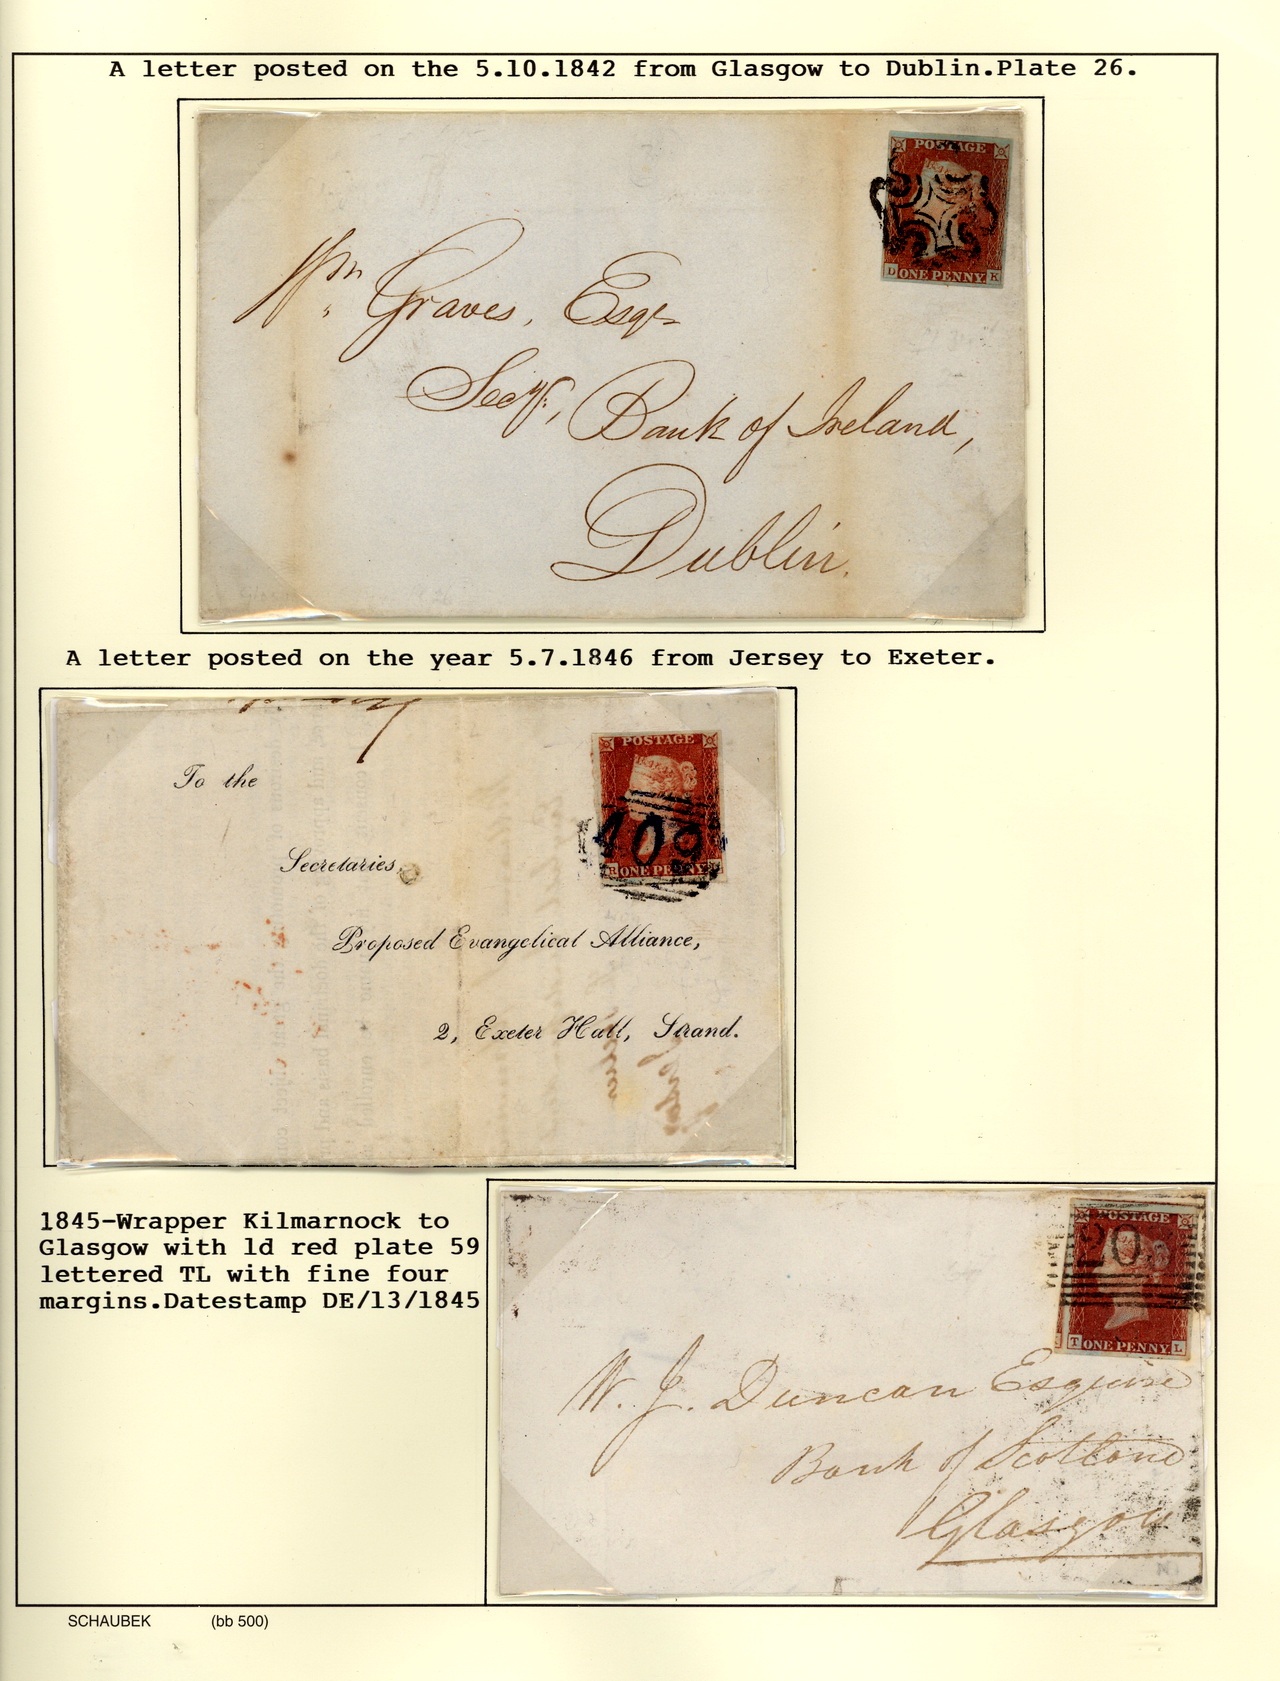 A letter posted on the 5.10.1842 from Glasgow to Dublin.Plate 26.
POSTAGE
D ONE PENNY K
Wm. Graves, Esqr
Secy., Bank of Ireland,
Dublin.
A letter posted on the year 5.7.1846 from Jersey to Exeter.
POSTAGE
409
R ONE PENNY
To the
Secretaries,
Proposed Evangelical Alliance,
2, Exeter Hall, Strand.
1845-Wrapper Kilmarnock to
Glasgow with 1d red plate 59
lettered TL with fine four
margins.Datestamp DE/13/1845
POSTAGE
20
T ONE PENNY L
W. J. Duncan Esquire
Bank of Scotland
Glasgow
SCHAUBEK (bb 500)